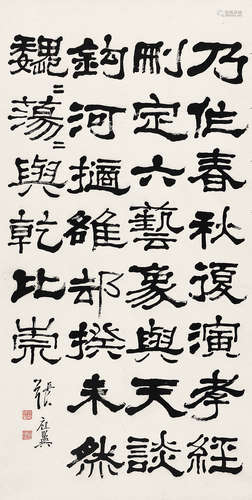 乃作春秋復演孝經
刪定六藝象與天談
鉤河摘雒却揆未然
魏〻蕩〻與乾比崇
張祖翼